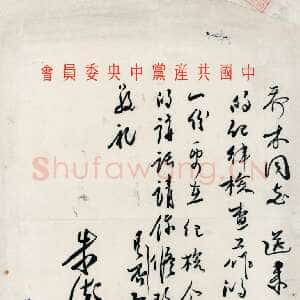 中國共產黨中央委員會
乔木同志 送来
的纪律检查工作的
一份 要在纪检会
的讲话请你修改
敬礼
朱德
Shufawang.CN